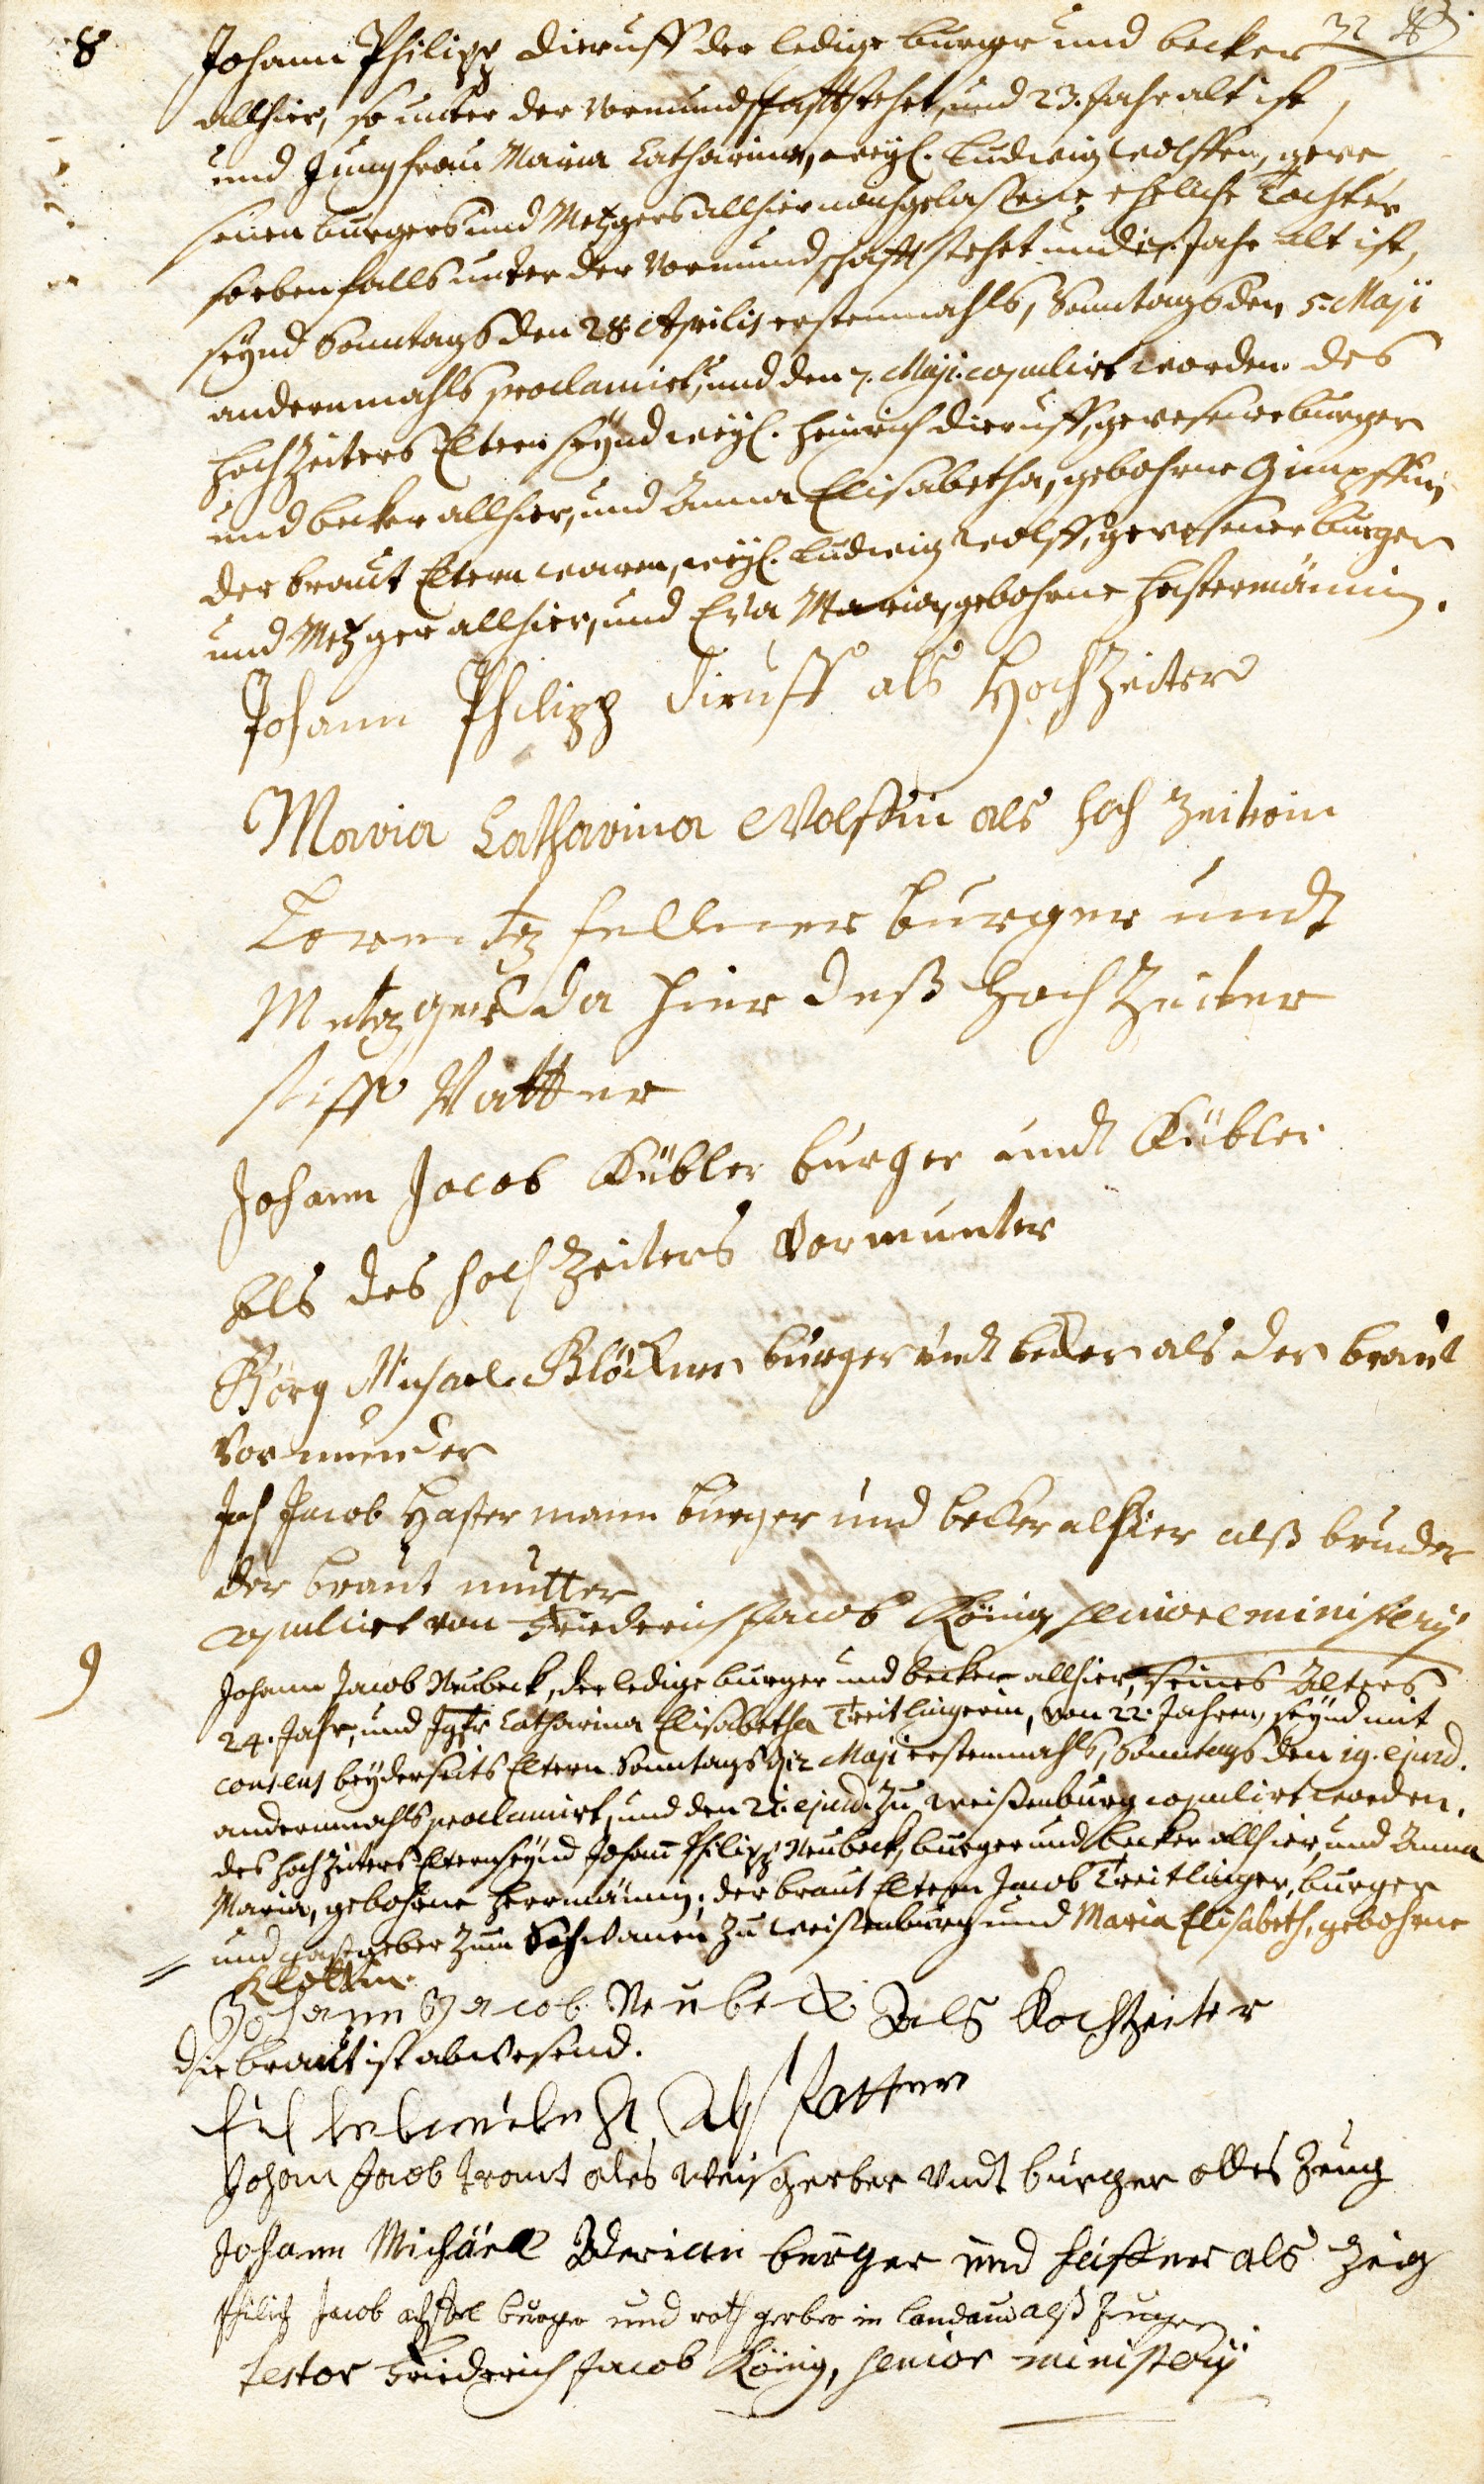 8 Johann Philipp Dieruff der ledige burger und becker 32
allhier, so unter der Vormundschafft stehet, und 23. Jahr alt ist,
und Jungfrau Maria Catharina, weyl. Ludwig Wolffen, gewe
senen burgers und Metzgers allhier nachgelassene eheliche Tochter
so ebenfalls unter der Vormundschafft stehet und Jahr alt ist,
seynd Sonntags den 28. Aprilis erstenmahls, Sonntags den 5. Maji
andernmahls proclamirt, und den 7. Maji copulirt worden. des
Hochzeiters Eltern seynd weyl. Heinrich Dieruff, gewesener burger
und becker allhier, und Anna Elisabetha, gebohrne Gimpffin,
der braut Eltern waren, weyl. Ludwig Wolff, gewesener burger
und Metzger allhier, und Eva Maria, gebohrne Hastermännin.
Johann Philipp Diruff als Hochzeiter
Maria Catharina Wolffin als hoch zeiterin
Lorentz fellner burger undt
Metzger da hier deß Hoch Zeiter
stiff Vatter
Johann Jacob Kübler burger undt Kübler
als des hoch Zeiters Vormunter
Görg Michael Blöckner burger undt becker als der braut
Vormunder
Joh Jacob Hastermann burger und becker alhier alß bruder
der braut mutter
copulirt von Friederich Jacob König seniore ministerij
9 Johann Jacob Neubeck, der ledige burger und becker allhier, seines Alters
24. Jahr, und Jgfr Catharina Elisabetha Treitlingerin, von 22. Jahren, seynd mit
consens beyderseits Eltern Sonntags d 12 Maji erstenmahls, Sonntags den 19. ejusd.
andernmahls proclamirt, und den 21. ejusd. zu Weißenburg copulirt worden.
des Hochzeiters Eltern seynd Johann Philipp Neubeck, burger und becker allhier, und Anna
Maria, gebohrne Herrmännin; der braut Eltern Jacob Treitlinger, burger
und gastgeber zum Schwanen zu Weißenburg und Maria Elisabeth, gebohrne
Klöttin.
Johann Jacob Neubeck Als Hochzeiter
die braut ist abwesend.
als Vatter
Johan Jacob Traut als Weisgerber Undt burger als Zeug
Johann Michäel burger und haffner als Zeig
Philip Jacob burger und roth gerber in Landau alß Zeuge
testor Friederich Jacob König, senior ministerij